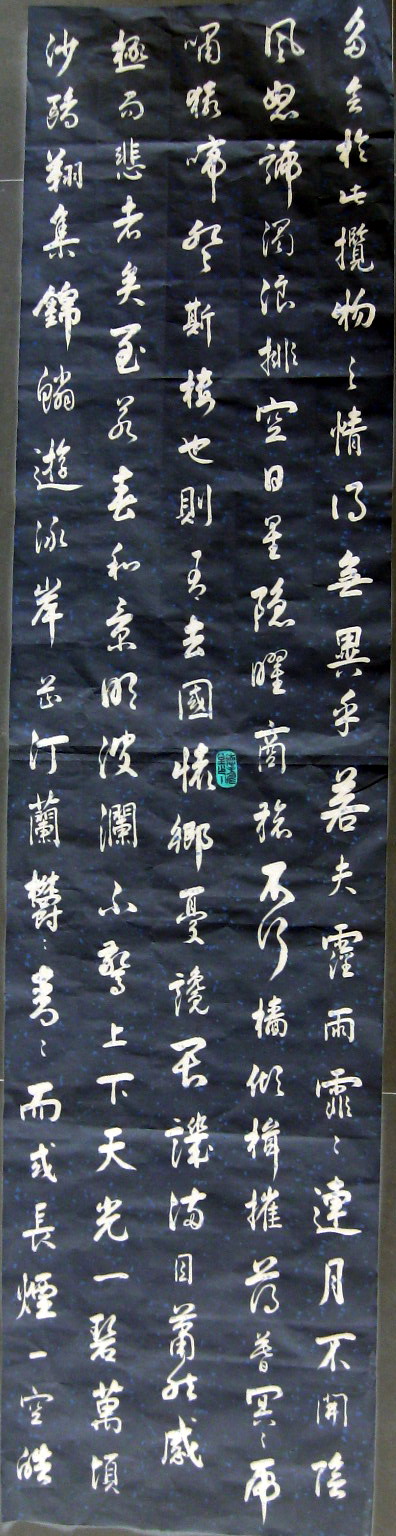 多會於此攬物之情得無異乎若夫霪雨霏〻連月不開陰
風怒號濁浪排空日星隱曜商旅不行檣傾楫摧薄暮冥〻虎
嘯猿啼登斯樓也則有去國懷鄉憂讒畏譏滿目蕭然感
極而悲者矣至若春和景明波瀾不驚上下天光一碧萬頃
沙鷗翔集錦鱗遊泳岸芷汀蘭鬱〻青〻而或長煙一空皓